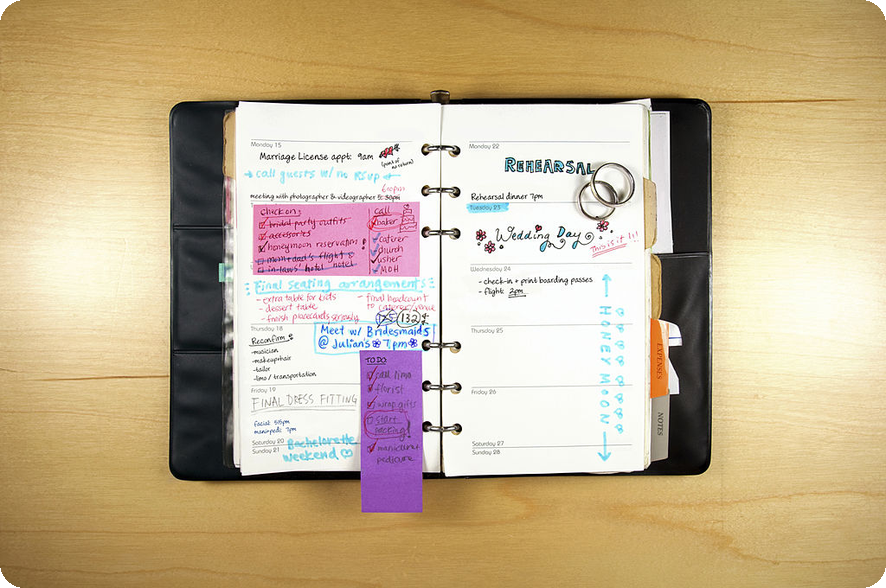 Monday 15
Marriage License appt: 9am
(point of no return)
call guests w/ no RSVP
6:00pm
meeting with photographer & videographer 5:30pm
check on:
bridal party outfits
accessories
honeymoon reservation!
mom+dad's flight
in-laws' hotel
call
baker
caterer
church
usher
MOH
Final seating arrangements
- extra table for kids
- dessert table
- finish placecards
- final headcount to caterer/venue
132
Thursday 18
Reconfirm
-musician
-makeup/hair
-tailor
-limo / transportation
Meet w/ Bridesmaids
@ Julian's 7pm
Friday 19
FINAL DRESS FITTING
facial: 5:15pm
mani+pedi: 7pm
Saturday 20
Sunday 21
Bachelorette
Weekend
TO DO:
call limo
florist
wrap gifts
start
packing!
manicure+
pedicure
Monday 22
REHEARSAL
Rehearsal dinner 7pm
Tuesday 23
Wedding Day
This is it!!!
Wednesday 24
- check-in + print boarding passes
- flight: 2pm
HONEYMOON
Thursday 25
Friday 26
Saturday 27
Sunday 28
EXPENSES
NOTES